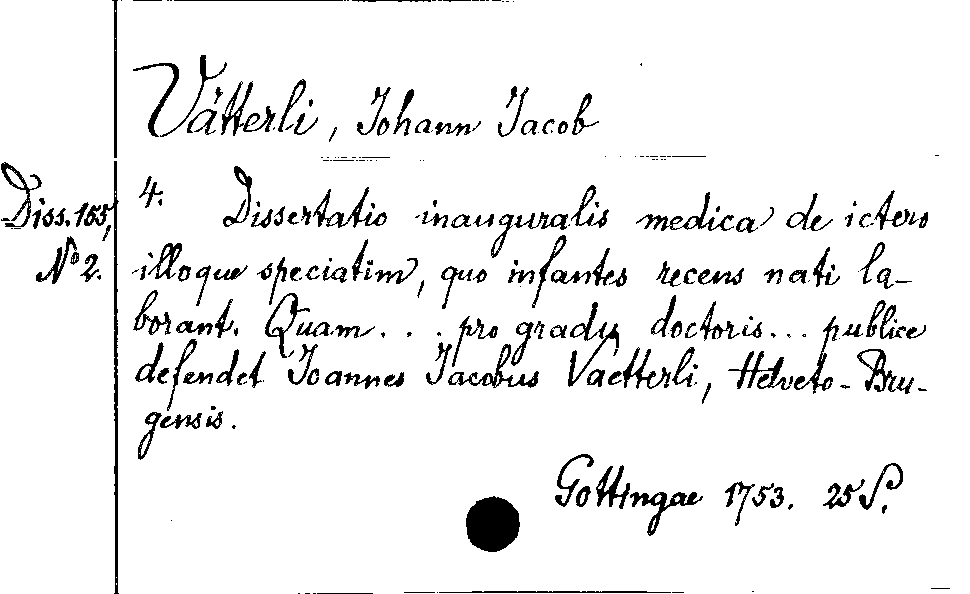 Vätterli, Johann Jacob
Diss. 155,
No 2.
4. Dissertatio inauguralis medica de ictero
illoque speciatim, quo infantes recens nati la-
borant. Quam . . . pro gradu doctoris... publice
defendet Joannes Jacobus Vaetterli, Helveto-Bru-
gensis.
Gottingae 1753. 25 S.